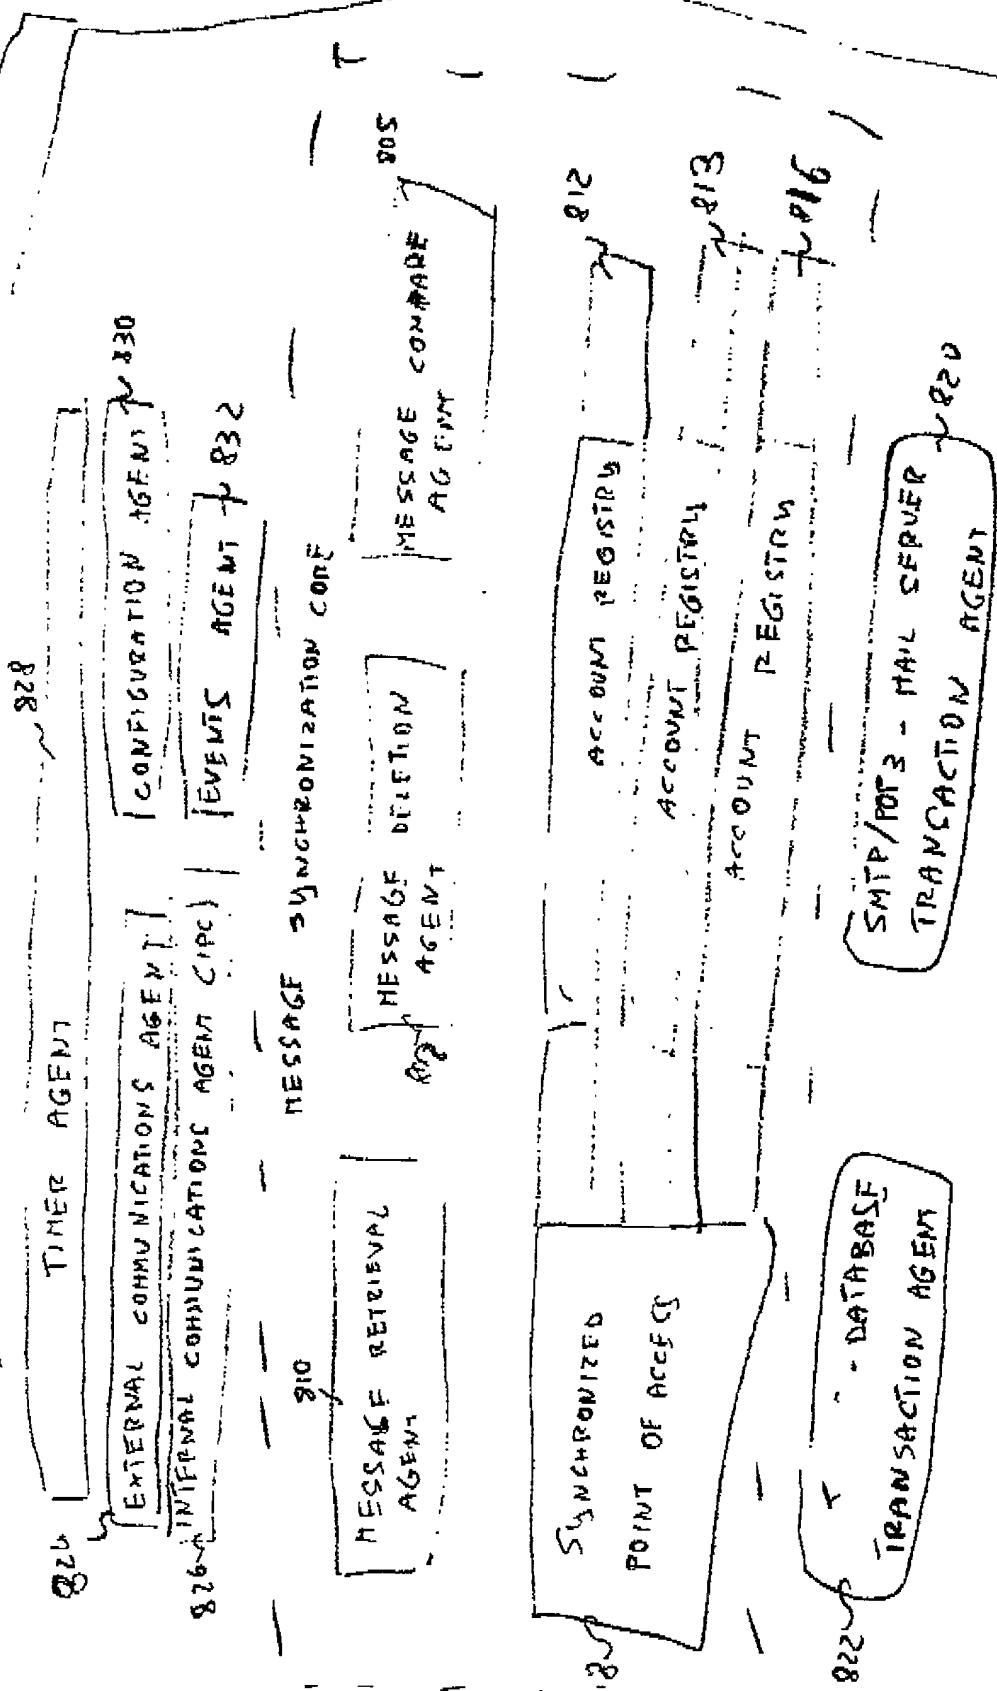 828
TIMER AGENT
824
EXTERNAL COMMUNICATIONS AGENT
CONFIGURATION AGENT
830
826
INTERNAL COMMUNICATIONS AGENT (IPC)
EVENTS AGENT
832
MESSAGE SYNCHRONIZATION CORE
810
MESSAGE RETRIEVAL
AGENT
MESSAGE DELETION
AGENT
MESSAGE COMPARE
AGENT
805
SYNCHRONIZED
POINT OF ACCESS
ACCOUNT REGISTRY
812
ACCOUNT REGISTRY
813
ACCOUNT REGISTRY
816
DATABASE
TRANSACTION AGENT
822
SMTP/POP3 - MAIL SERVER
TRANSACTION AGENT
820